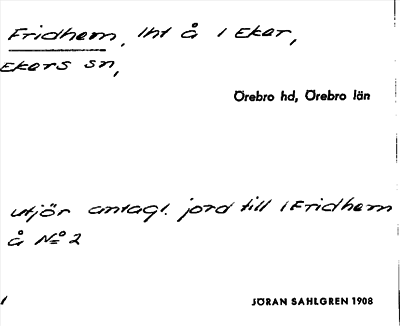 Fridhem, lht å 1 Eker,
Ekers sn,
Örebro hd, Örebro län
utjör antagl. jord till 1 Fridhem
å No 2
JÖRAN SAHLGREN 1908